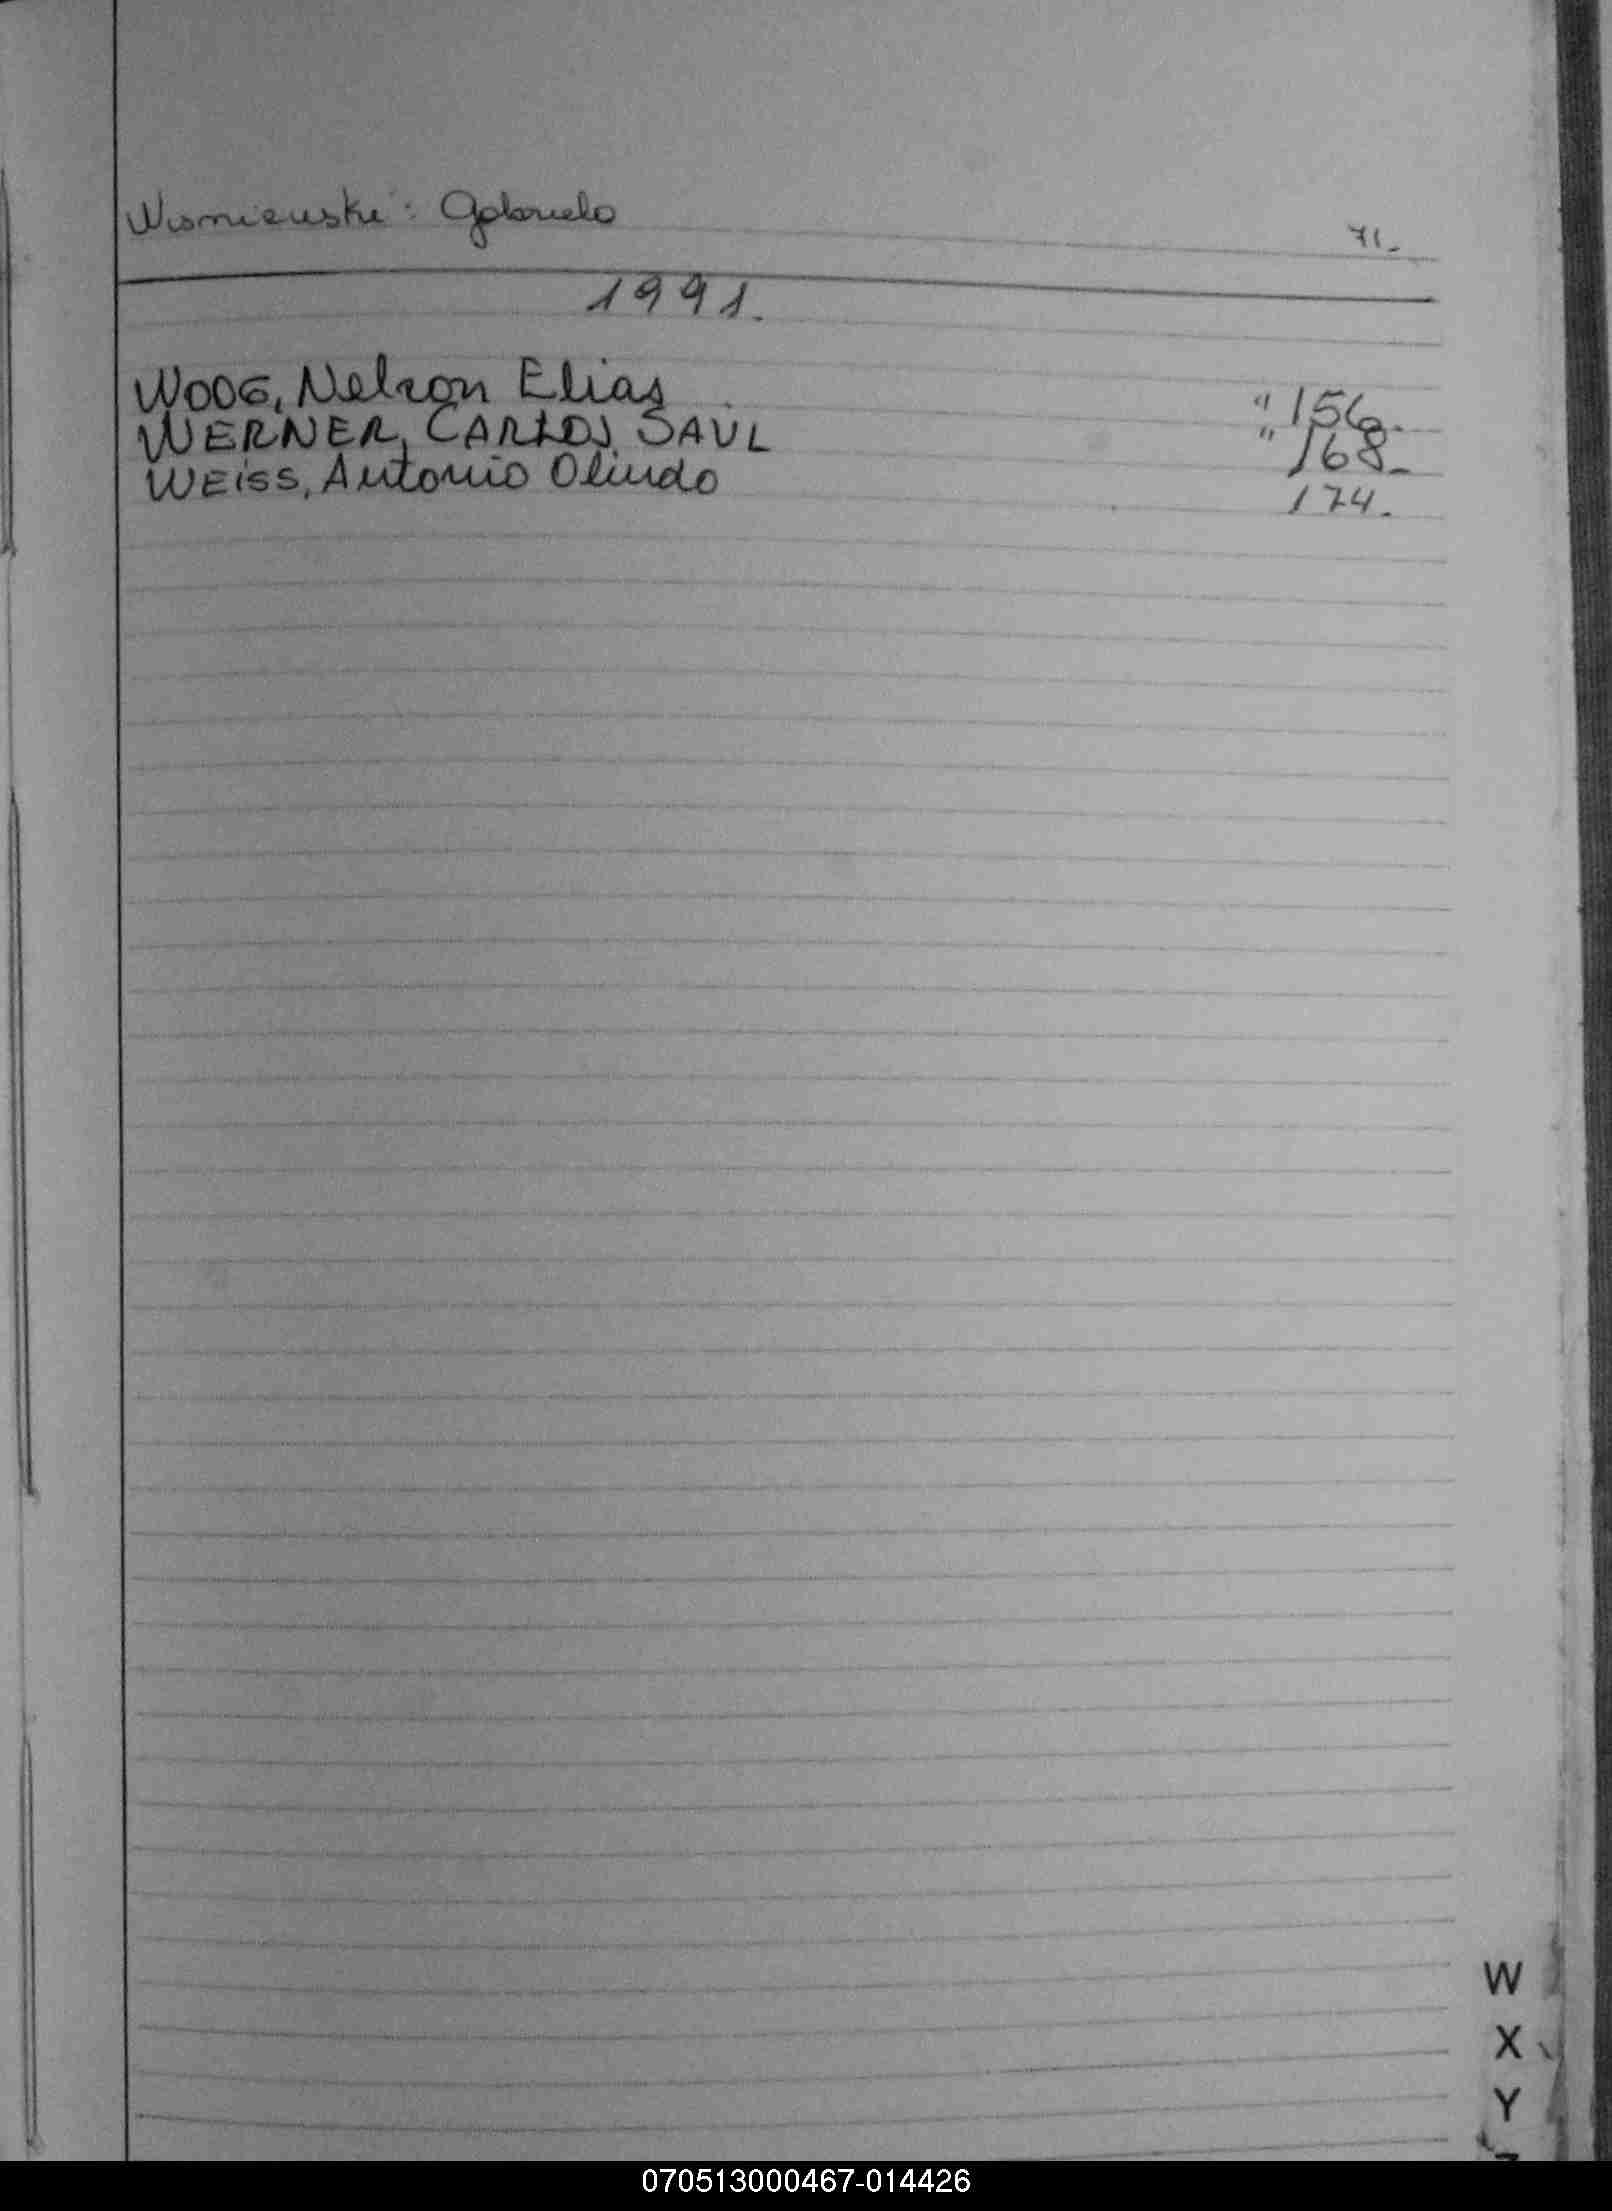 Wisniewski: Gabriela 71-
1991.
WOOG, Nelson Elias " 156.
WERNER, CARLOS SAUL " 168-
WEISS, Antonio Olindo 174.
W
X
Y
Z
070513000467-014426